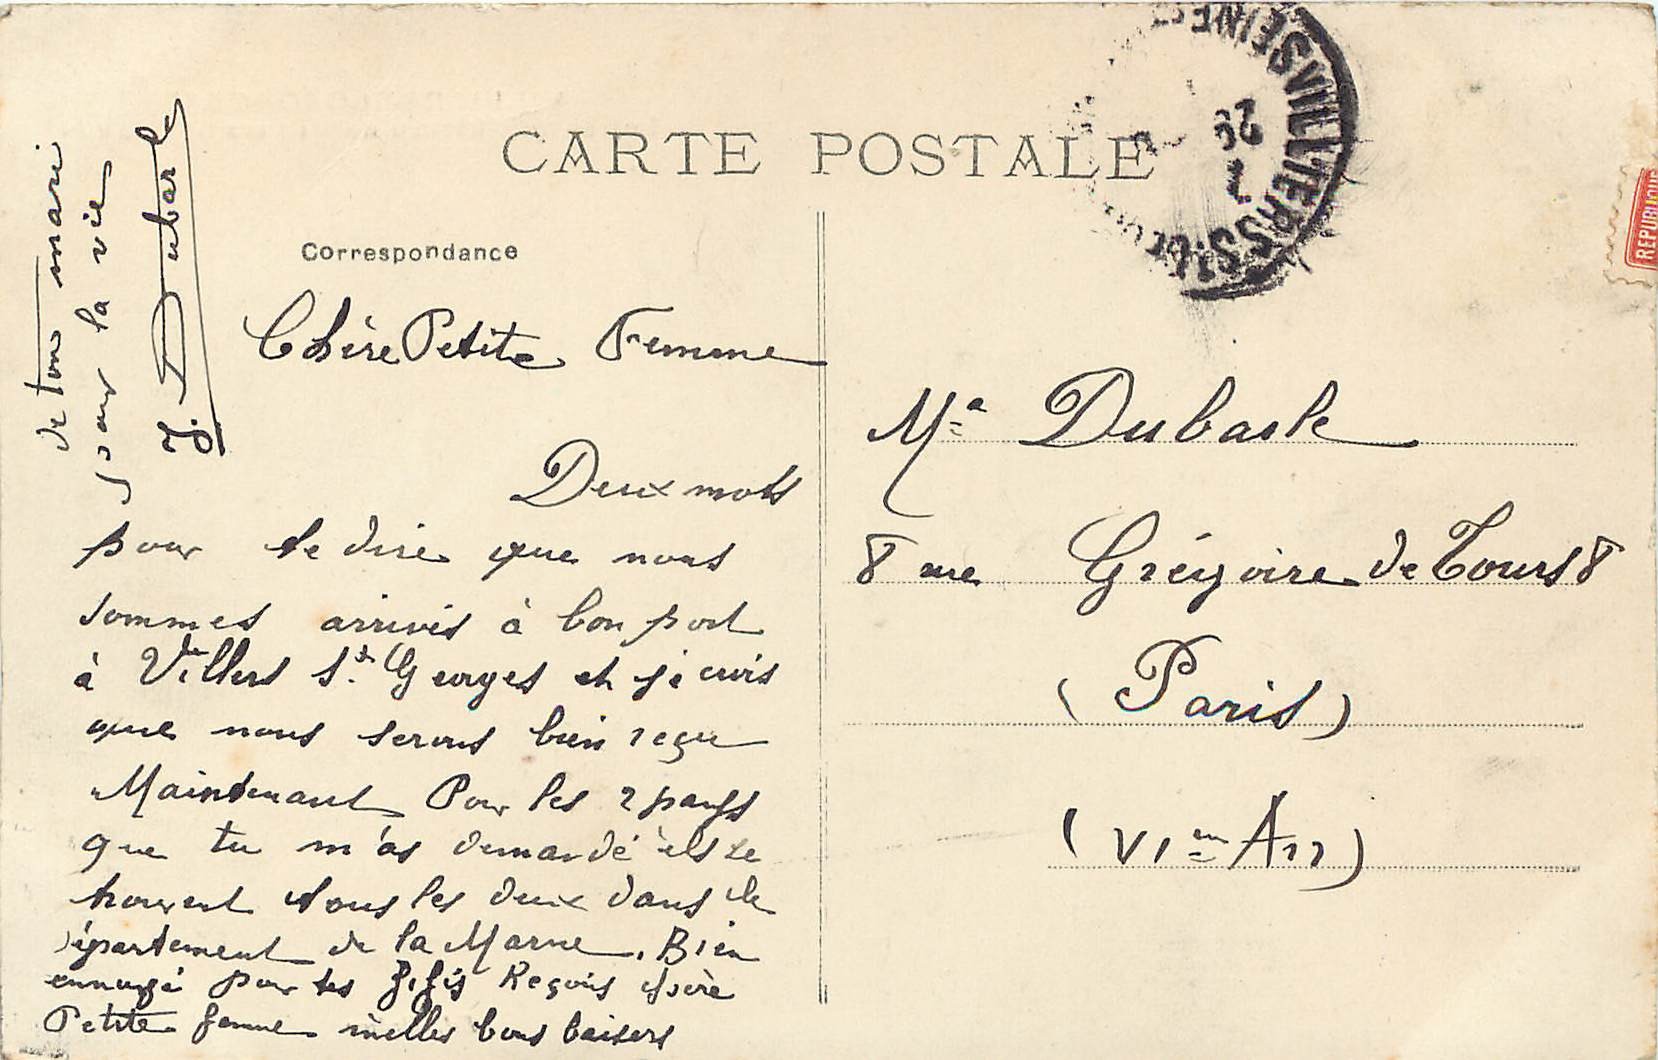 CARTE POSTALE
Correspondance
Chère Petite Femme
Deux mots
pour te dire que nous
sommes arrivés à bon port
à Villers St. Georges et je crois
que nous serons bien reçu
Maintenant Pour les 2 pays
que tu m'as demandé ils se
trouvent tous les deux dans le
département de la Marne. Bien
ennuyé pour tes Reçois chère
Petite femme milles bons baisers
de ton mari
pour la vie
J. Dubarle
Ma Dubarle
8 rue Grégoire de Tours 8
(Paris)
(VIem Arr)
VILLIERS-St-GEORGES
SEINE-ET
26
REPUBLIQUE